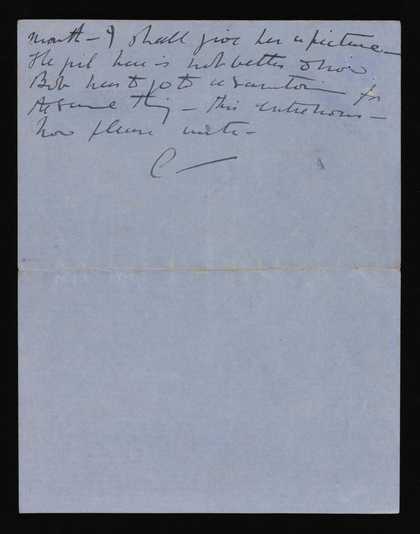 month – I shall give her a picture –
The girl here is not better & now
Bob has to go to a sanatorium for
the same thing – this entre nous –
Now please write –
C –